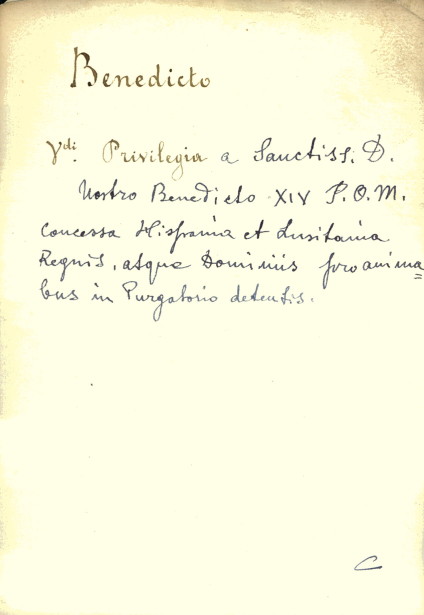 Benedicto
Vdi. Privilegia a Sanctiss. D.
Nostro Benedicto XIV P.O.M.
concessa Hispania et Lusitania
Regnis, atque Dominiis pro anima=
bus in Purgatorio detentis.
C